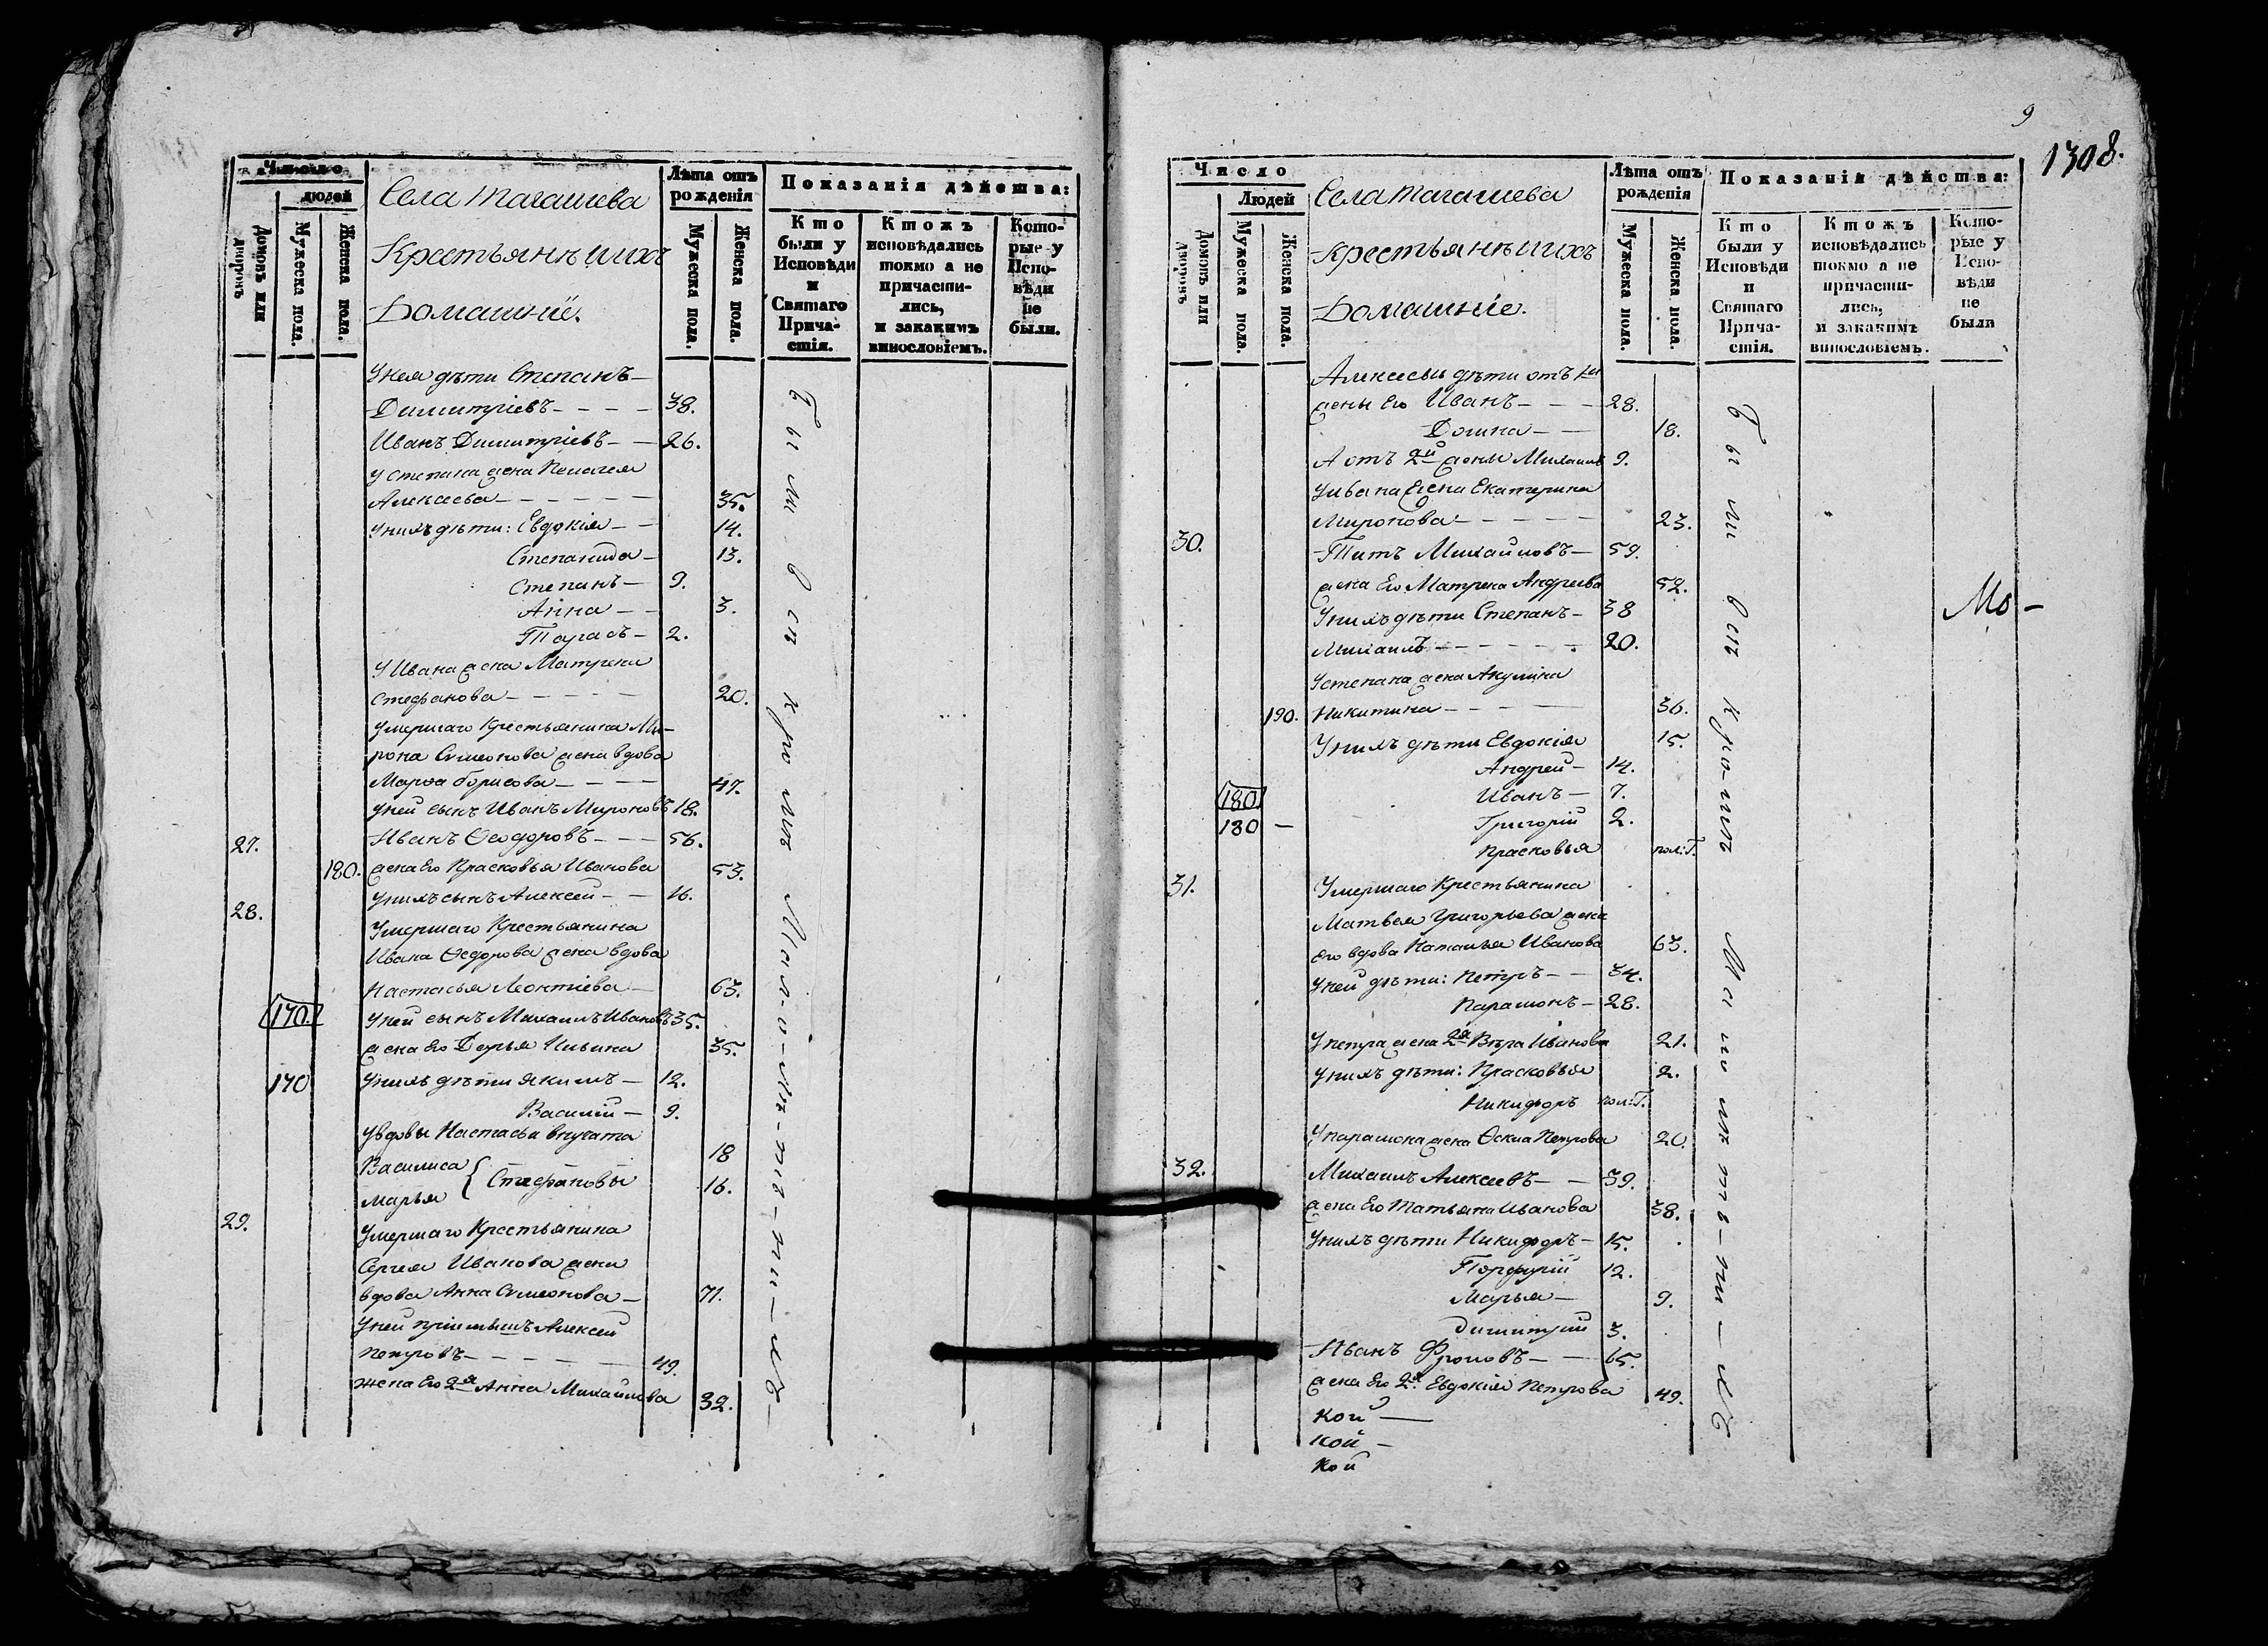 Число
людей
Домовъ или дворовъ
Мужеска пола.
Женска пола.
Села Тагашева
Крестьянъ ихъ
Домашніе.
Лѣта отъ рожденія
Мужеска пола.
Женска пола.
Показанія дѣйства:
Кто были у Исповѣди и Святаго Причастія.
Ктожъ исповѣдались токмо а не причастились, и закакимъ винословіемъ.
Которые у Исповѣди не были.
У нея дѣти Степанъ
Димитріевъ 38.
Иванъ Димитріевъ 26.
У Степана жена Пелагея
Алексеева 35.
У нихъ дѣти: Евдокія 14.
Степанида 13.
Степанъ 9.
Анна 3.
Тарасъ 2.
У Ивана жена Матрена
Стефанова 20.
Умершаго Крестьянина Ми-
рона Симеонова жена вдова
Марфа Борисова 47.
У ней сынъ Иванъ Мироновъ 18.
27. Иванъ Ѳеодоровъ 56.
180. жена Его Прасковья Иванова 53.
У нихъ сынъ Алексей 16.
28. Умершаго Крестьянина
Ивана Ѳедорова жена вдова
Настасья Леонтіева 63.
170. У ней сынъ Михаилъ Ивановъ 35.
жена Его Дарья Ильина 35.
170 У нихъ дѣти Якимъ 12.
Василій 9.
У вдовы Настасьи внучата
Василиса 18
Марья } Стефановы 16.
29. Умершаго Крестьянина
Сергея Иванова жена
вдова Анна Симеонова 71.
У ней пріемышъ Алексей
Петровъ 49.
жена Его 2я Анна Михайлова 32.
Были всѣ кромѣ
9
1308.
Число
Людей
Домовъ или дворовъ
Мужеска пола.
Женска пола.
Села Тагашева
Крестьянъ ихъ
Домашніе.
Лѣта отъ рожденія
Мужеска пола.
Женска пола.
Показанія дѣйства:
Кто были у Исповѣди и Святаго Причастія.
Ктожъ исповѣдались токмо а не причастились, и закакимъ винословіемъ.
Которые у Исповѣди не были
Алексеевы дѣти отъ 1й
жены Его Иванъ 28.
Домна 18.
А отъ 2й жены Михаилъ 9.
У Ивана жена Екатерина
Миронова 23.
30. Титъ Михайловъ 59.
жена Его Матрена Андреева 52.
У нихъ дѣти Степанъ 38
Михаилъ 20.
У Степана жена Акулина
190. Никитина 36.
У нихъ дѣти Евдокія 15.
Андрей 14.
180 Иванъ 7.
180 Григорій 2.
Прасковья пол: Г.
31. Умершаго Крестьянина
Матвея Григорьева жена
его вдова Наталья Иванова 63.
У ней дѣти: Петръ 34.
Парамонъ 28.
У Петра жена 2я Вѣра Иванова 21.
У нихъ дѣти: Прасковья 2.
Никифоръ пол: Г.
У Парамона жена Ѳекла Петрова 20.
32. Михаилъ Алексеевъ 39.
жена Его Татьяна Иванова 38.
У нихъ дѣти Никифоръ 15.
Порфирій 12.
Марья 9.
Димитрій 3.
Иванъ Фроловъ 65.
жена Его 2я Евдокія Петрова 49.
Кой
Кой
Кой
Были всѣ кромѣ
Мо-